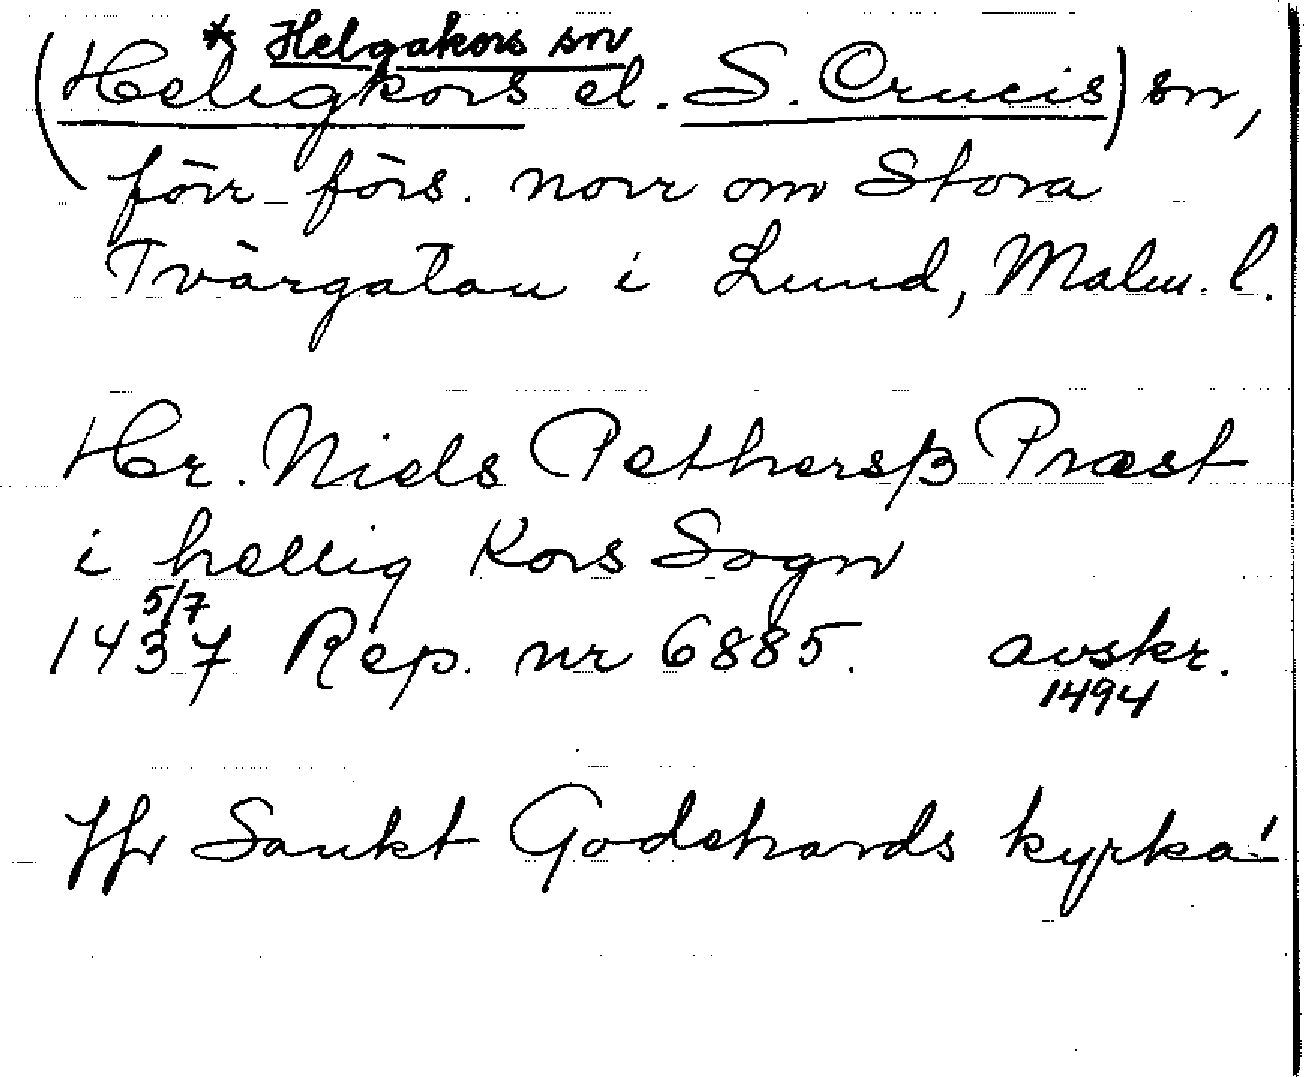 * Helgakors sn
(Heligkors el. S. Crucis) sn,
förr förs. norr om Stora
Tvärgatan i Lund, Malm. l.
Hr. Niels Pethersß Præst
i hellig Kors Sogn
5/7
1437 Rep. nr 6885. avskr.
1494
Jfr Sankt Godehards kyrka!